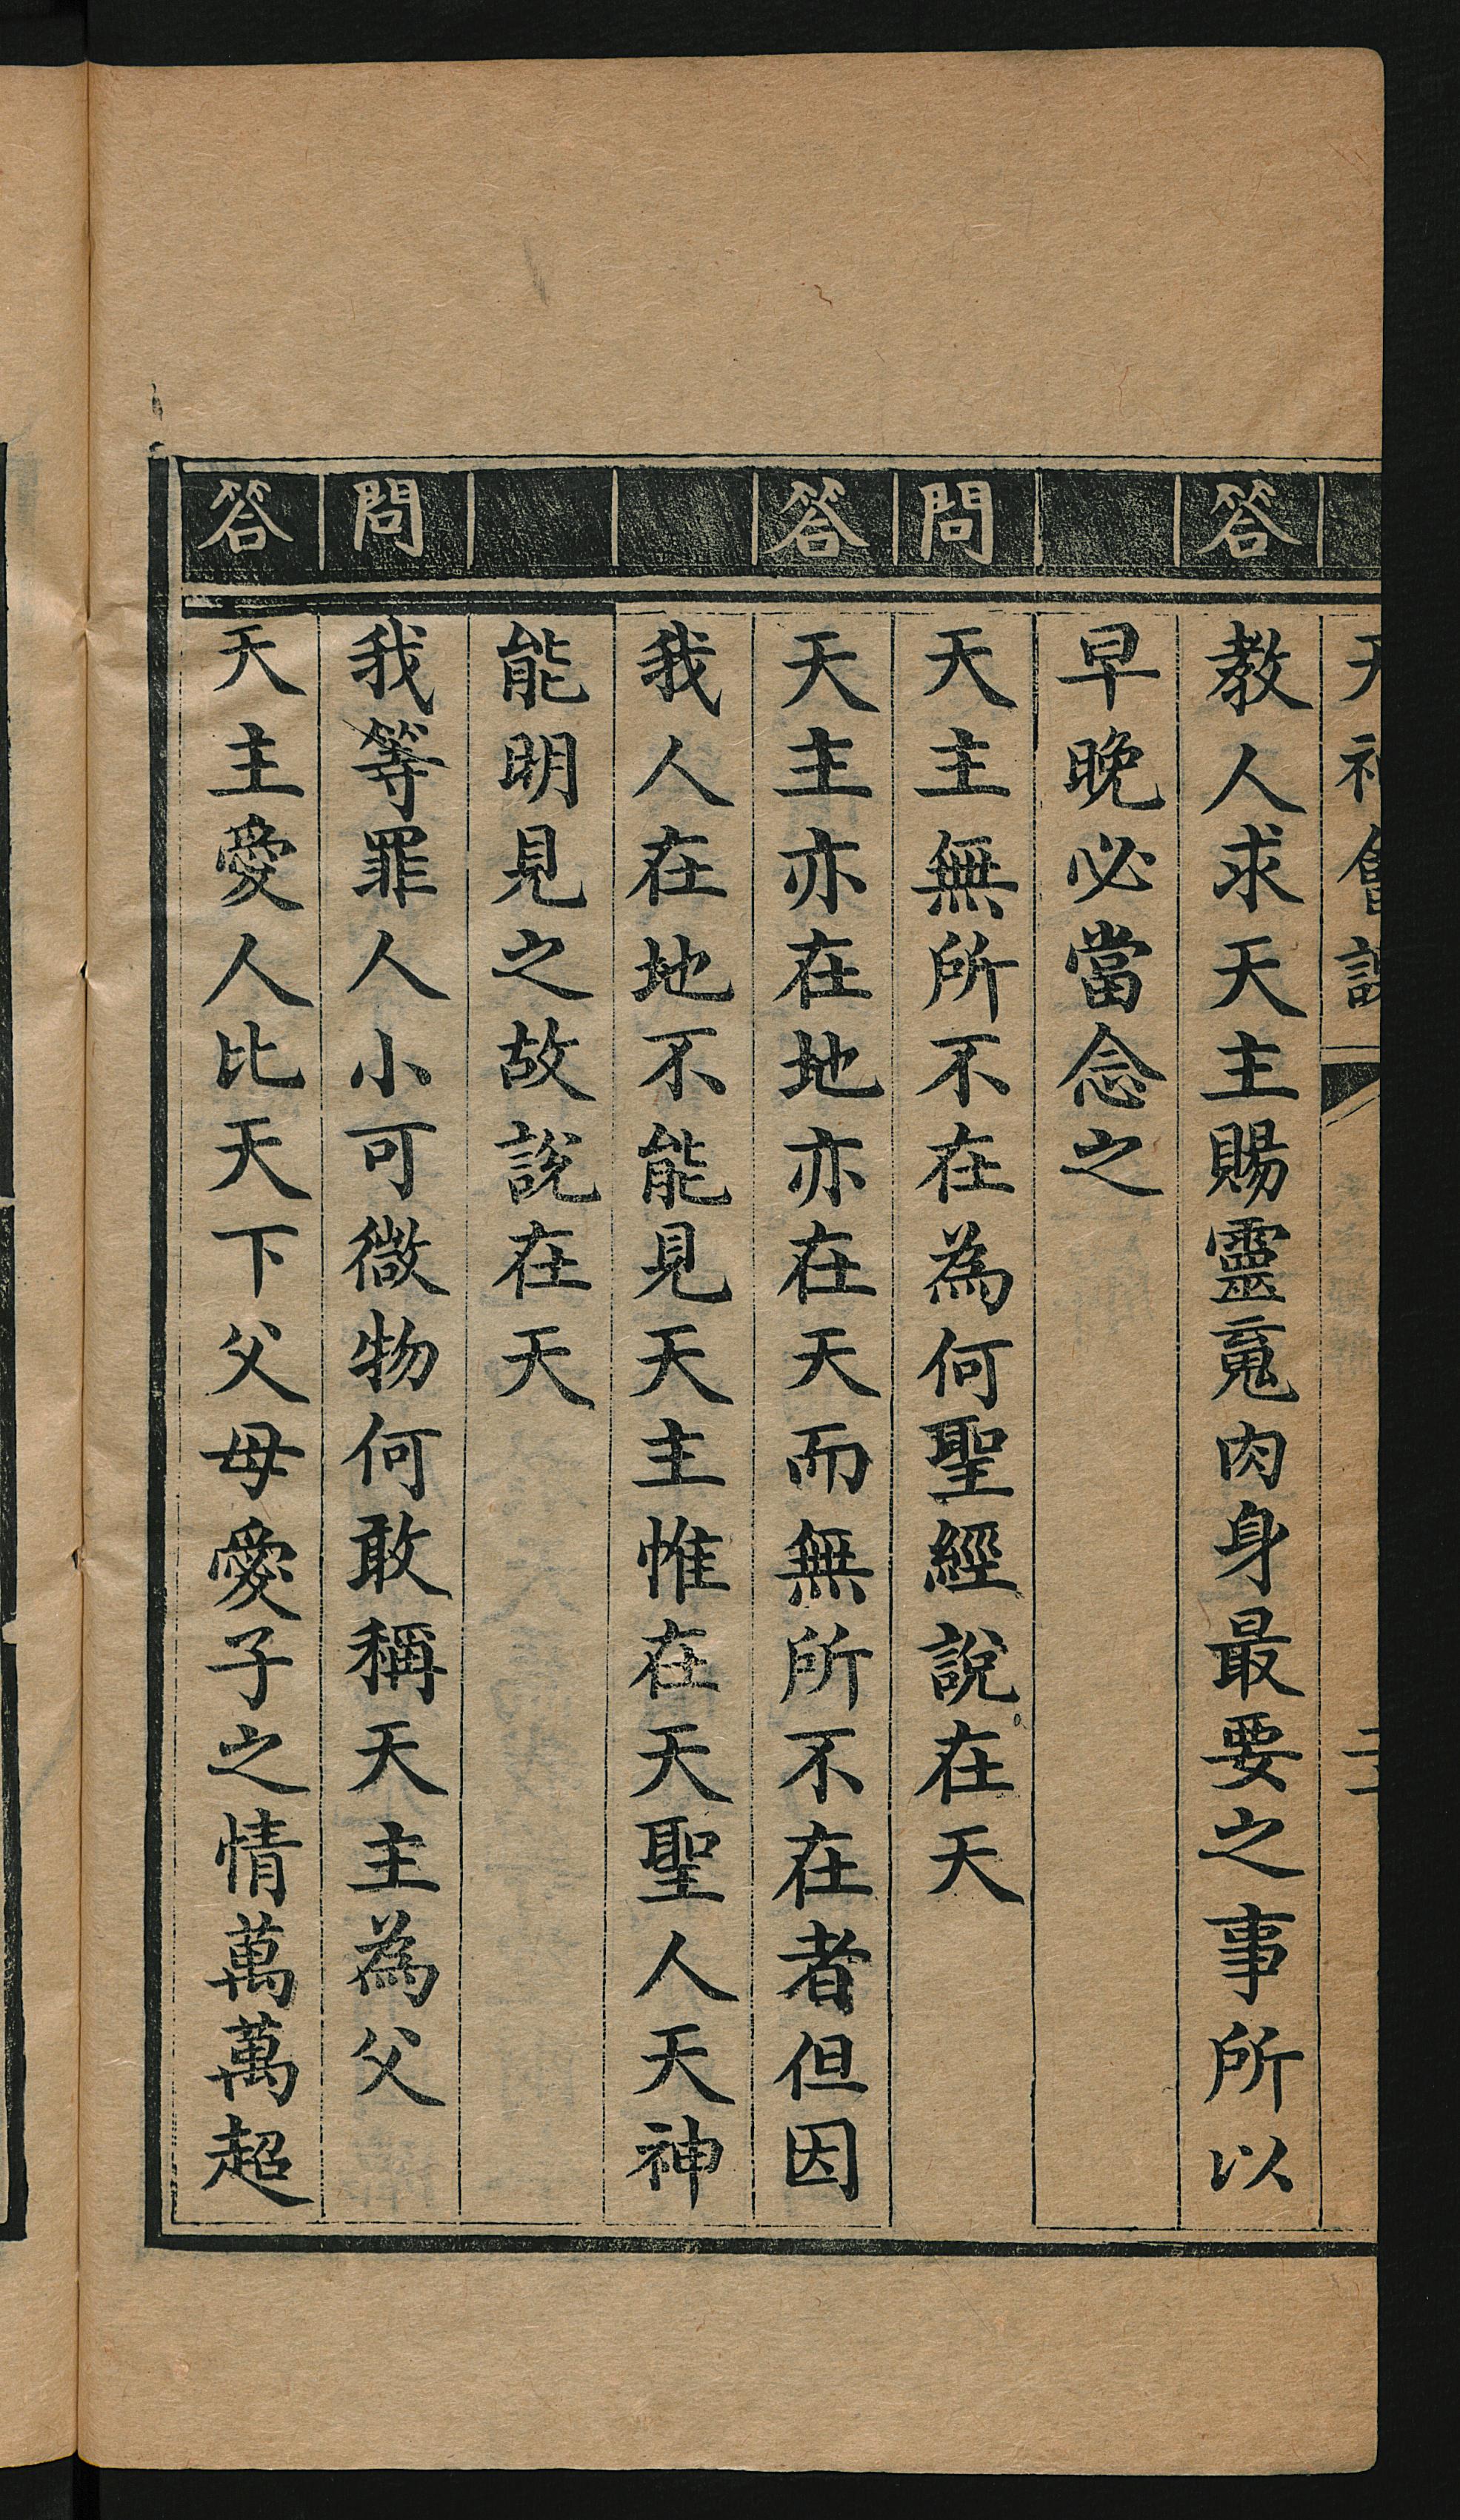 天神會課
答 教人求天主賜靈䰟肉身最要之事所以
早晚必當念之
問 天主無所不在為何聖經說在天
答 天主亦在地亦在天而無所不在者但因
我人在地不能見天主惟在天聖人天神
能明見之故說在天
問 我等罪人小可微物何敢稱天主為父
答 天主愛人比天下父母愛子之情萬萬超